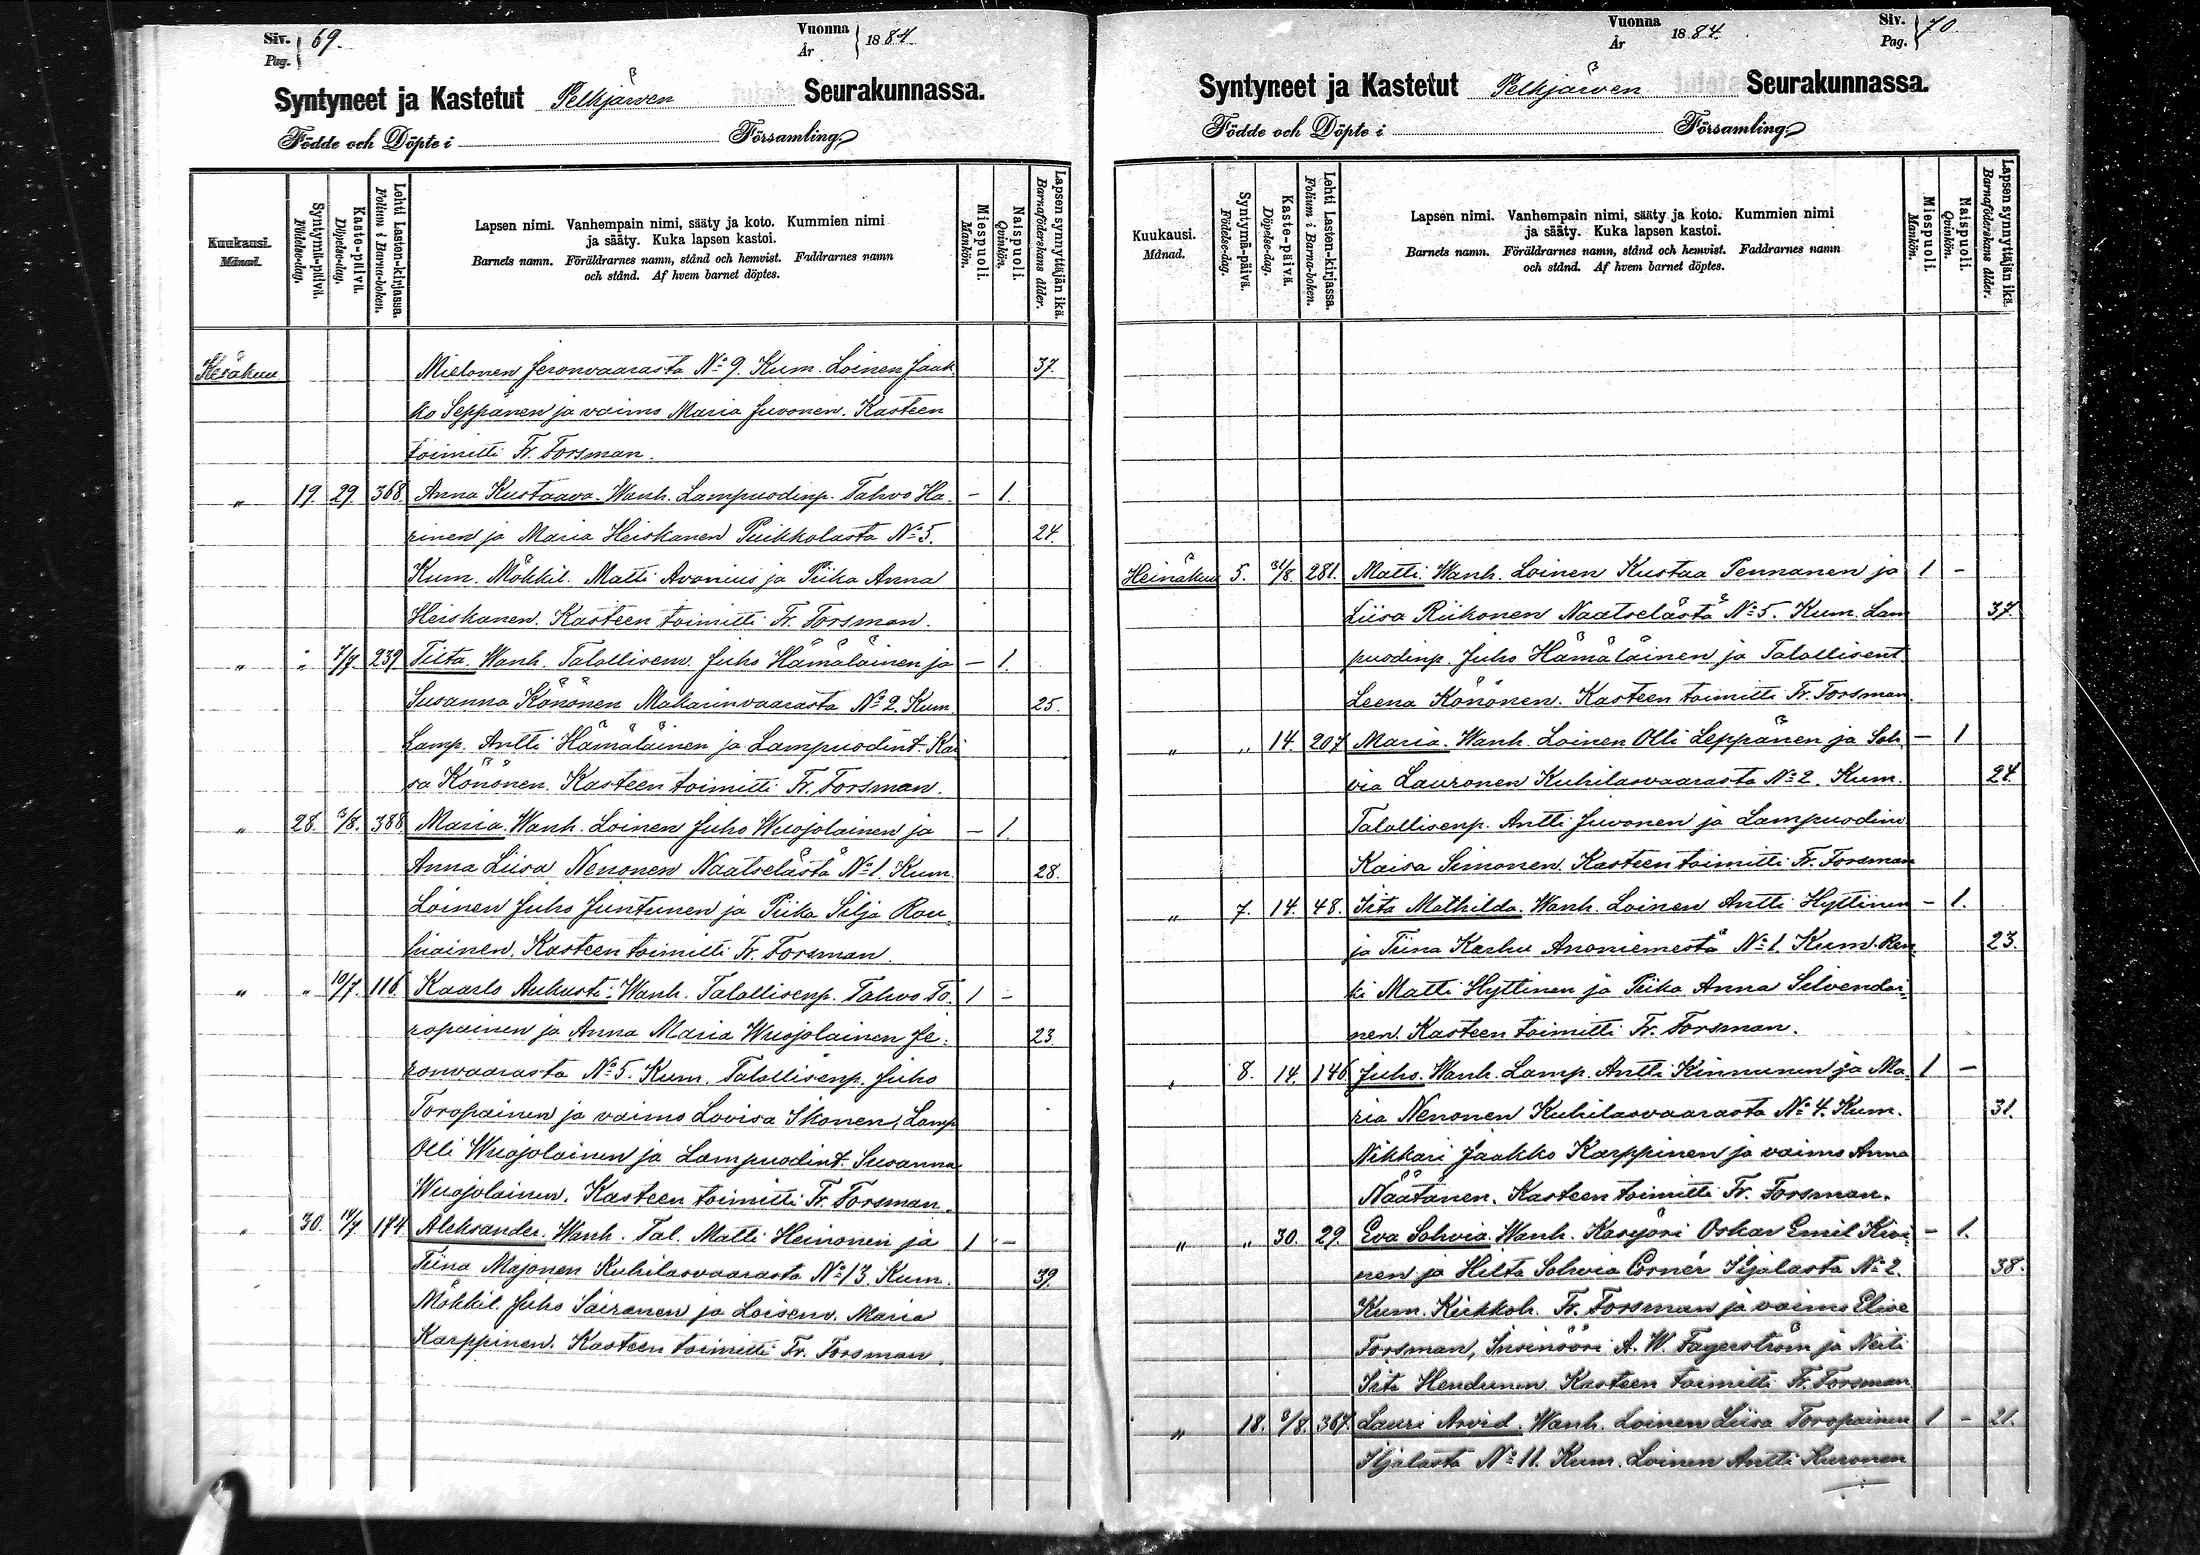 Siv. Pag. 69.
Vuonna År 1884
Syntyneet ja Kastetut Pelkjärwen Seurakunnassa.
Födde och Döpte i Församling
Kuukausi. Månad.
Syntymä-päivä. Födelse-dag.
Kaste-päivä. Döpelse-dag.
Lehti Lasten-kirjassa. Folium i Barna-boken.
Lapsen nimi. Vanhempain nimi, sääty ja koto. Kummien nimi
ja sääty. Kuka lapsen kastoi.
Barnets namn. Föräldrarnes namn, stånd och hemvist. Faddrarnes namn
och stånd. Af hvem barnet döptes.
Miespuoli. Mankön.
Naispuoli. Qvinkön.
Lapsen synnyttäjän ikä. Barnaföderskans ålder.
Kesäkuu Mielonen Jeronvaarasta No 9. Kum. Loinen Jaak 37.
ko Seppänen ja vaimo Maria Juvonen. Kasteen
toimitti Fr. Forsman.
" 19. 29. 368. Anna Kustaava. Wanh. Lampuodinp. Tahvo Ha- – 1.
rinen ja Maria Heiskanen Puikkolasta No 5. 24.
Kum. Mökkil. Matti Avonius ja Piika Anna
Heiskanen. Kasteen toimitti Fr. Forsman.
" " 7/7. 239 Tilta. Wanh. Talollisenv. Juho Hämäläinen ja – 1.
Susanna Könönen Makarinvaarasta No 2. Kum. 25.
Lamp. Antti Hämäläinen ja Lampuodint. Kai
sa Könönen. Kasteen toimitti Fr. Forsman.
" 28. 3/8. 388 Maria. Wanh. Loinen Juho Wuojolainen ja – 1.
Anna Liisa Nenonen Naatselästä No 1. Kum. 28.
Loinen Juho Juntunen ja Piika Silja Rau-
hiainen. Kasteen toimitti Fr. Forsman.
" " 10/7. 116. Kaarlo Auhusti. Wanh. Talollisenp. Tahvo To- 1 –
ropainen ja Anna Maria Wuojolainen Je- 23
ronvaarasta No 5. Kum. Talollisenp. Juho
Toropainen ja vaimo Lovisa Ikonen, Lamp
Olli Wuojolainen ja Lampuodint. Susanna
Wuojolainen. Kasteen toimitti Fr. Forsman.
" 30. 14/7 174 Aleksander. Wanh. Tal. Matti Heinonen ja 1 –
Tiina Majonen Kuhilasvaarasta No 13. Kum. 39.
Mökkil. Juho Sairanen ja Loisenv. Maria
Karppinen. Kasteen toimitti Fr. Forsman.
Vuonna År 1884.
Siv. Pag. 70
Syntyneet ja Kastetut Pelkjärven Seurakunnassa.
Födde och Döpte i Församling
Kuukausi. Månad.
Syntymä-päivä. Födelse-dag.
Kaste-päivä. Döpelse-dag.
Lehti Lasten-kirjassa. Folium i Barna-boken.
Lapsen nimi. Vanhempain nimi, sääty ja koto. Kummien nimi
ja sääty. Kuka lapsen kastoi.
Barnets namn. Föräldrarnes namn, stånd och hemvist. Faddrarnes namn
och stånd. Af hvem barnet döptes.
Miespuoli. Mankön.
Naispuoli. Qvinkön.
Lapsen synnyttäjän ikä. Barnaföderskans ålder.
Heinäkuu 5. 31/8 281. Matti. Wanh. Loinen Kustaa Pennanen ja 1 –
Liisa Riikonen Naatselästä No 5. Kum. Lam 37.
puodinp. Juho Hämäläinen ja Talollisent.
Leena Könönen. Kasteen toimitti Fr. Forsman.
" " 14. 207 Maria. Wanh. Loinen Olli Leppänen ja Soh – 1
via Lauronen Kuhilasvaarasta No 2. Kum. 24.
Talollisenp. Antti Juvonen ja Lampuodinv.
Kaisa Simonen. Kasteen toimitti Fr. Forsman
" 7. 14. 48. Iita Mathilda. Wanh. Loinen Antti Hyttinen – 1.
ja Tiina Karhu Anoniemestä No 1. Kum. Ren- 23.
ki Matti Hyttinen ja Piika Anna Silvendoi-
nen. Kasteen toimitti Fr. Forsman.
" 8. 14. 146 Juho. Wanh. Lamp. Antti Kinnunen ja Ma- 1 –
ria Nenonen Kuhilasvaarasta No 4. Kum. 31.
Nikkari Jaakko Karppinen ja vaimo Anna
Näätänen. Kasteen toimitti Fr. Forsman.
" " 30. 29. Eva Sohvia. Wanh. Karjöri Oskar Emil Kivi- – 1.
nen ja Hilta Sohvia Cornér Iljalasta No 2. 38.
Kum. Kirkkoh. Fr. Forsman ja vaimo Elise
Forsman, Insinööri A. W. Fagerström ja Neiti
Iita Hendunen. Kasteen toimitti Fr. Forsman.
" 18. 3/8. 367. Lauri Arvid. Wanh. Loinen Liisa Toropainen 1 – 21.
Iljalasta No 11. Kum. Loinen Antti Huronen